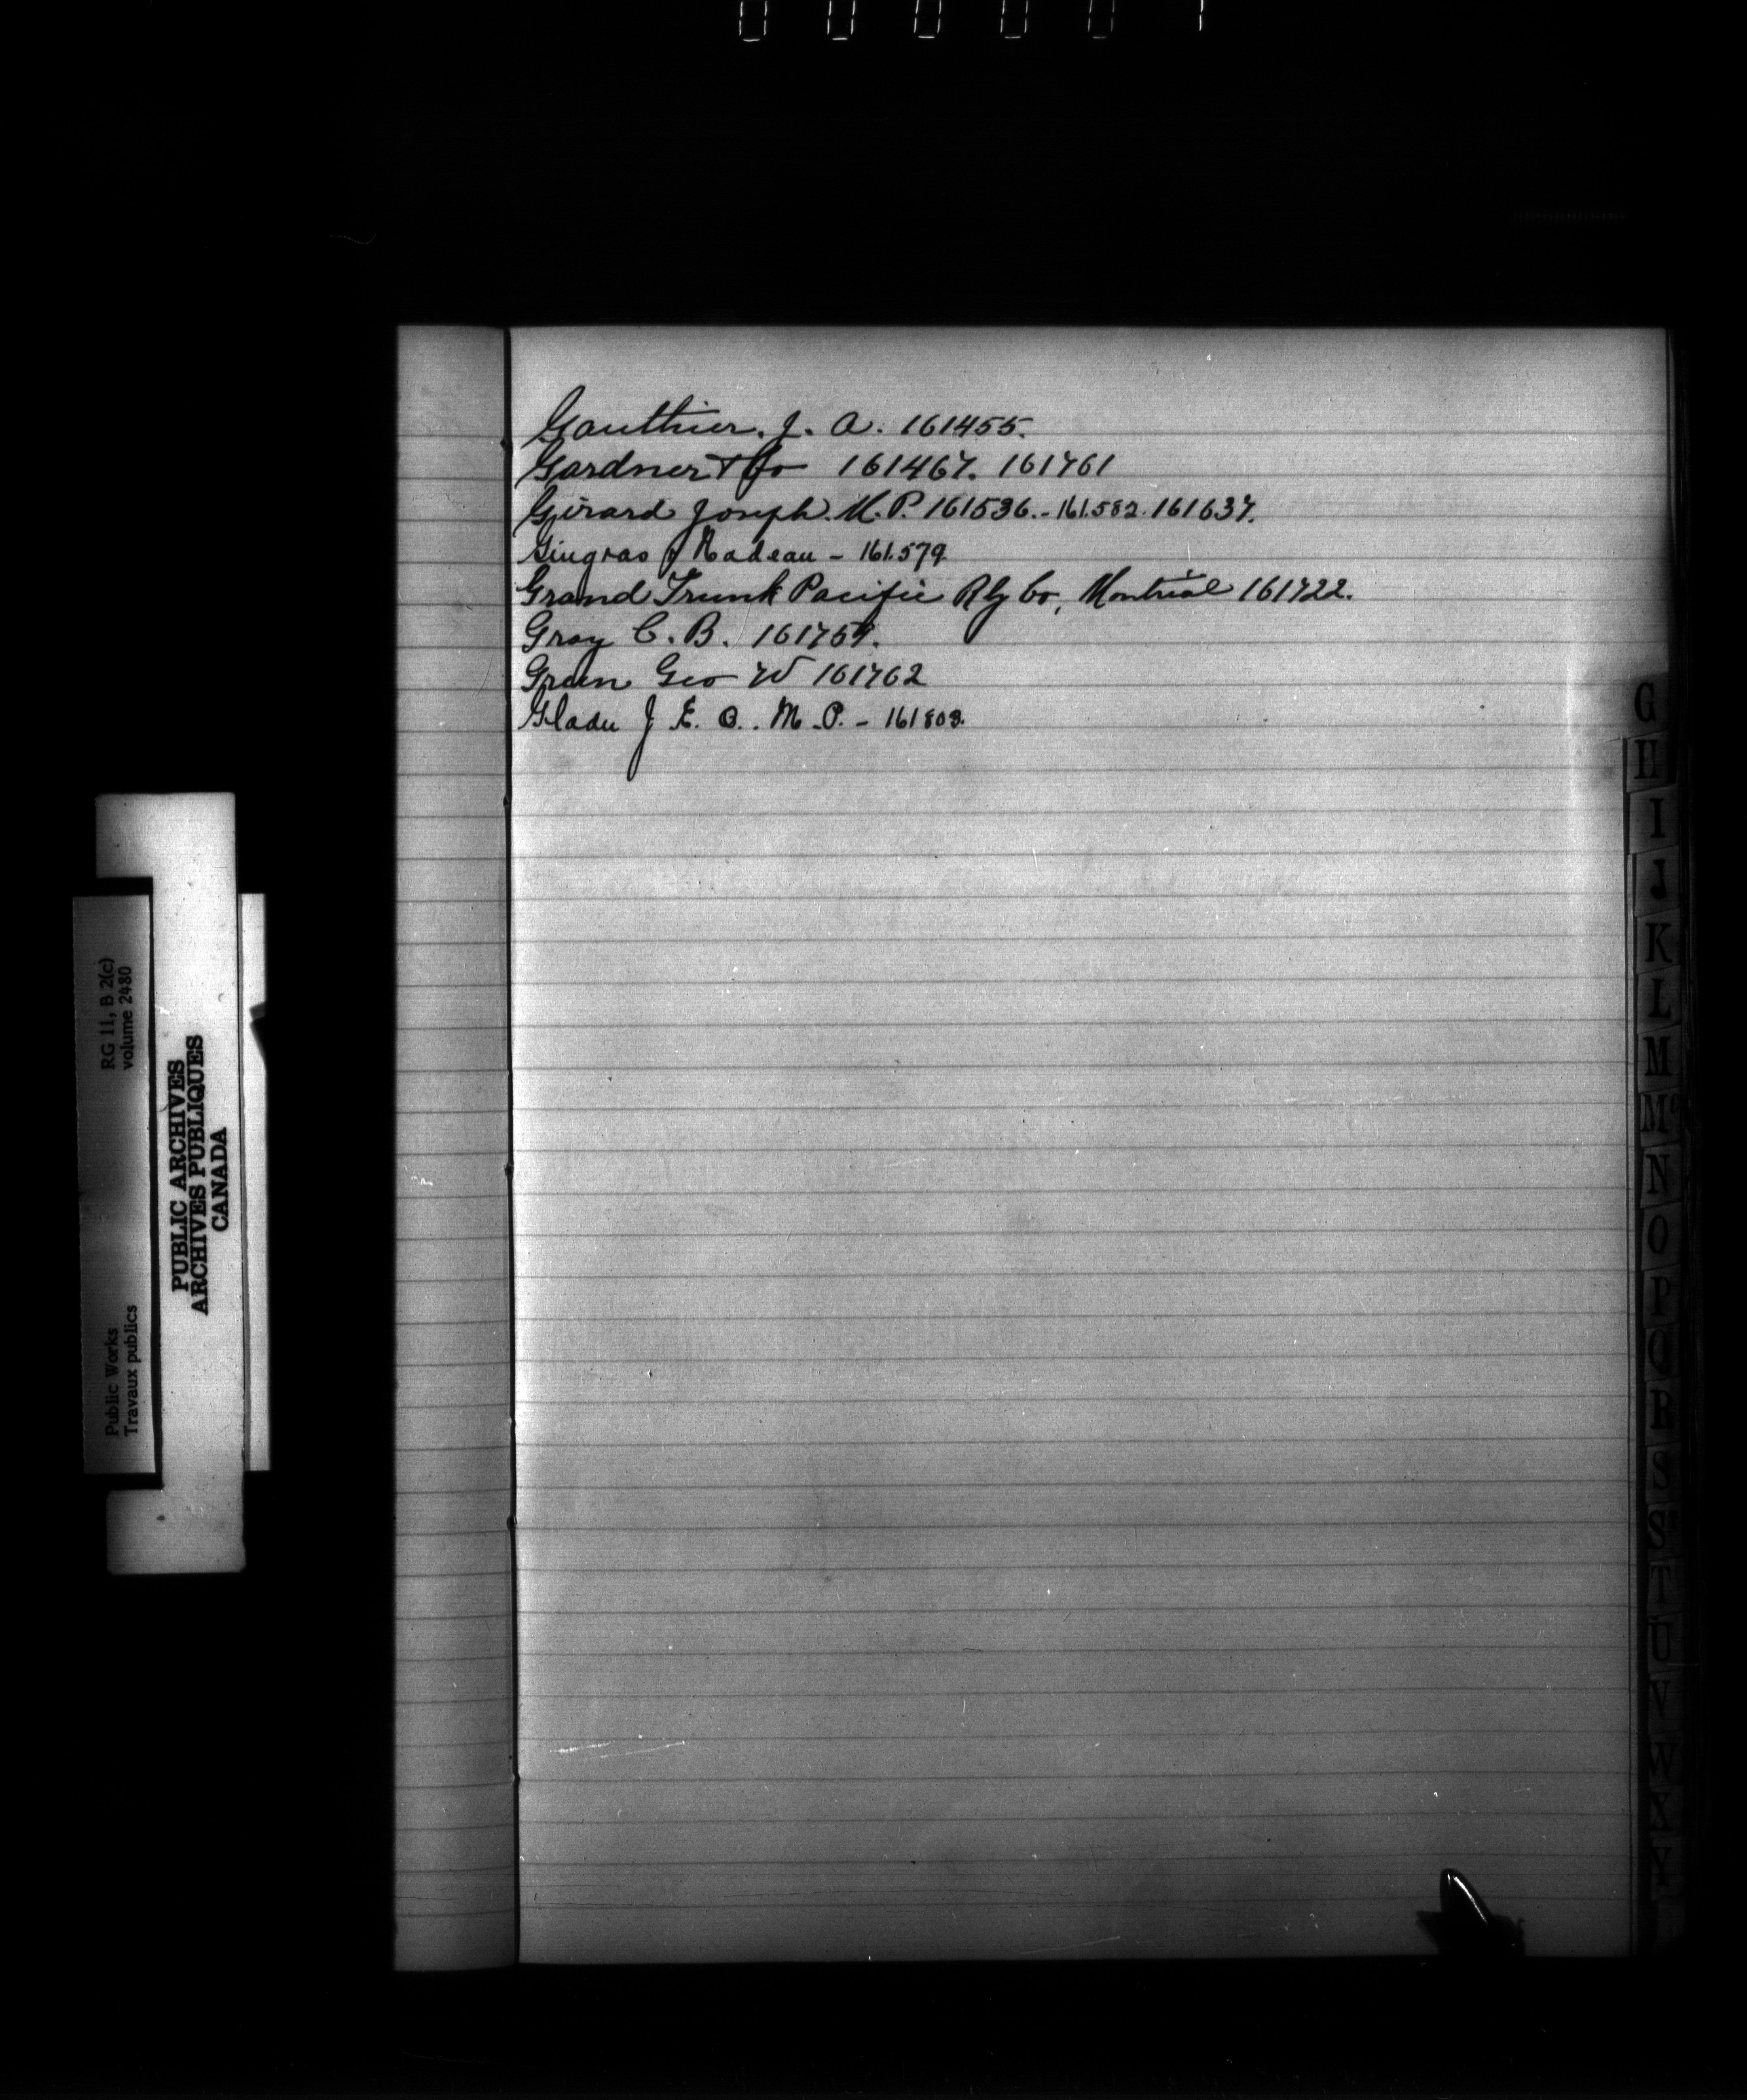 Gauthier. J. A. 161455.
Gardner & Co 161467. 161761
Girard Joseph. M.P. 161536.- 161.582. 161637.
Gingras & Nadeau - 161.579
Grand Trunk Pacific Rly Co, Montreal 161722.
Gray C. B. 161759.
Green Geo W 161762
Gladu J. E. O. M.P. - 161803.
G
H
I
J
K
L
M
Mc
N
O
P
Q
R
S
T
U
V
W
X
Y
RG 11, B 2(c)
volume 2480
Public Works
Travaux publics
PUBLIC ARCHIVES
ARCHIVES PUBLIQUES
CANADA